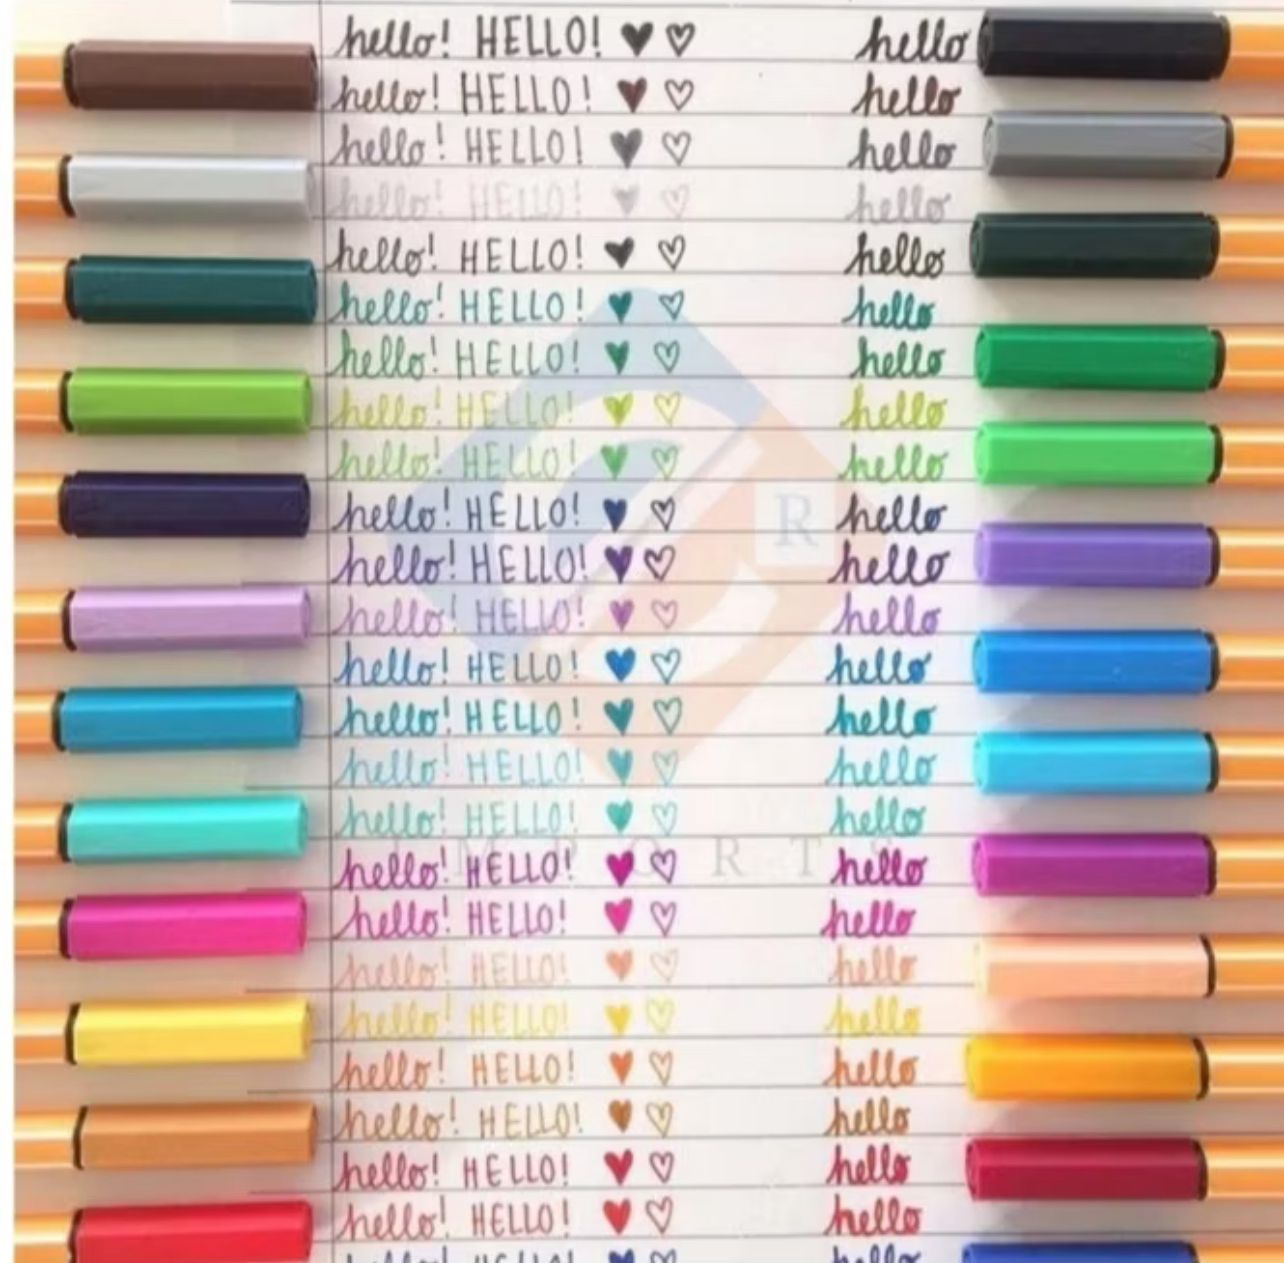 hello! HELLO! ♥ ♡ hello
hello! HELLO! ♥ ♡ hello
hello! HELLO! ♥ ♡ hello
hello! HELLO! ♥ ♡ hello
hello! HELLO! ♥ ♡ hello
hello! HELLO! ♥ ♡ hello
hello! HELLO! ♥ ♡ hello
hello! HELLO! ♥ ♡ hello
hello! HELLO! ♥ ♡ hello
hello! HELLO! ♥ ♡ hello
R
hello! HELLO! ♥ ♡ hello
hello! HELLO! ♥ ♡ hello
hello! HELLO! ♥ ♡ hello
hello! HELLO! ♥ ♡ hello
hello! HELLO! ♥ ♡ hello
hello! HELLO! ♥ ♡ hello
IMPORTS
hello! HELLO! ♥ ♡ hello
hello! HELLO! ♥ ♡ hello
hello! HELLO! ♥ ♡ hello
hello! HELLO! ♥ ♡ hello
hello! HELLO! ♥ ♡ hello
hello! HELLO! ♥ ♡ hello
hello! HELLO! ♥ ♡ hello
hello! HELLO! ♥ ♡ hello
hello! HELLO! ♥ ♡ hello